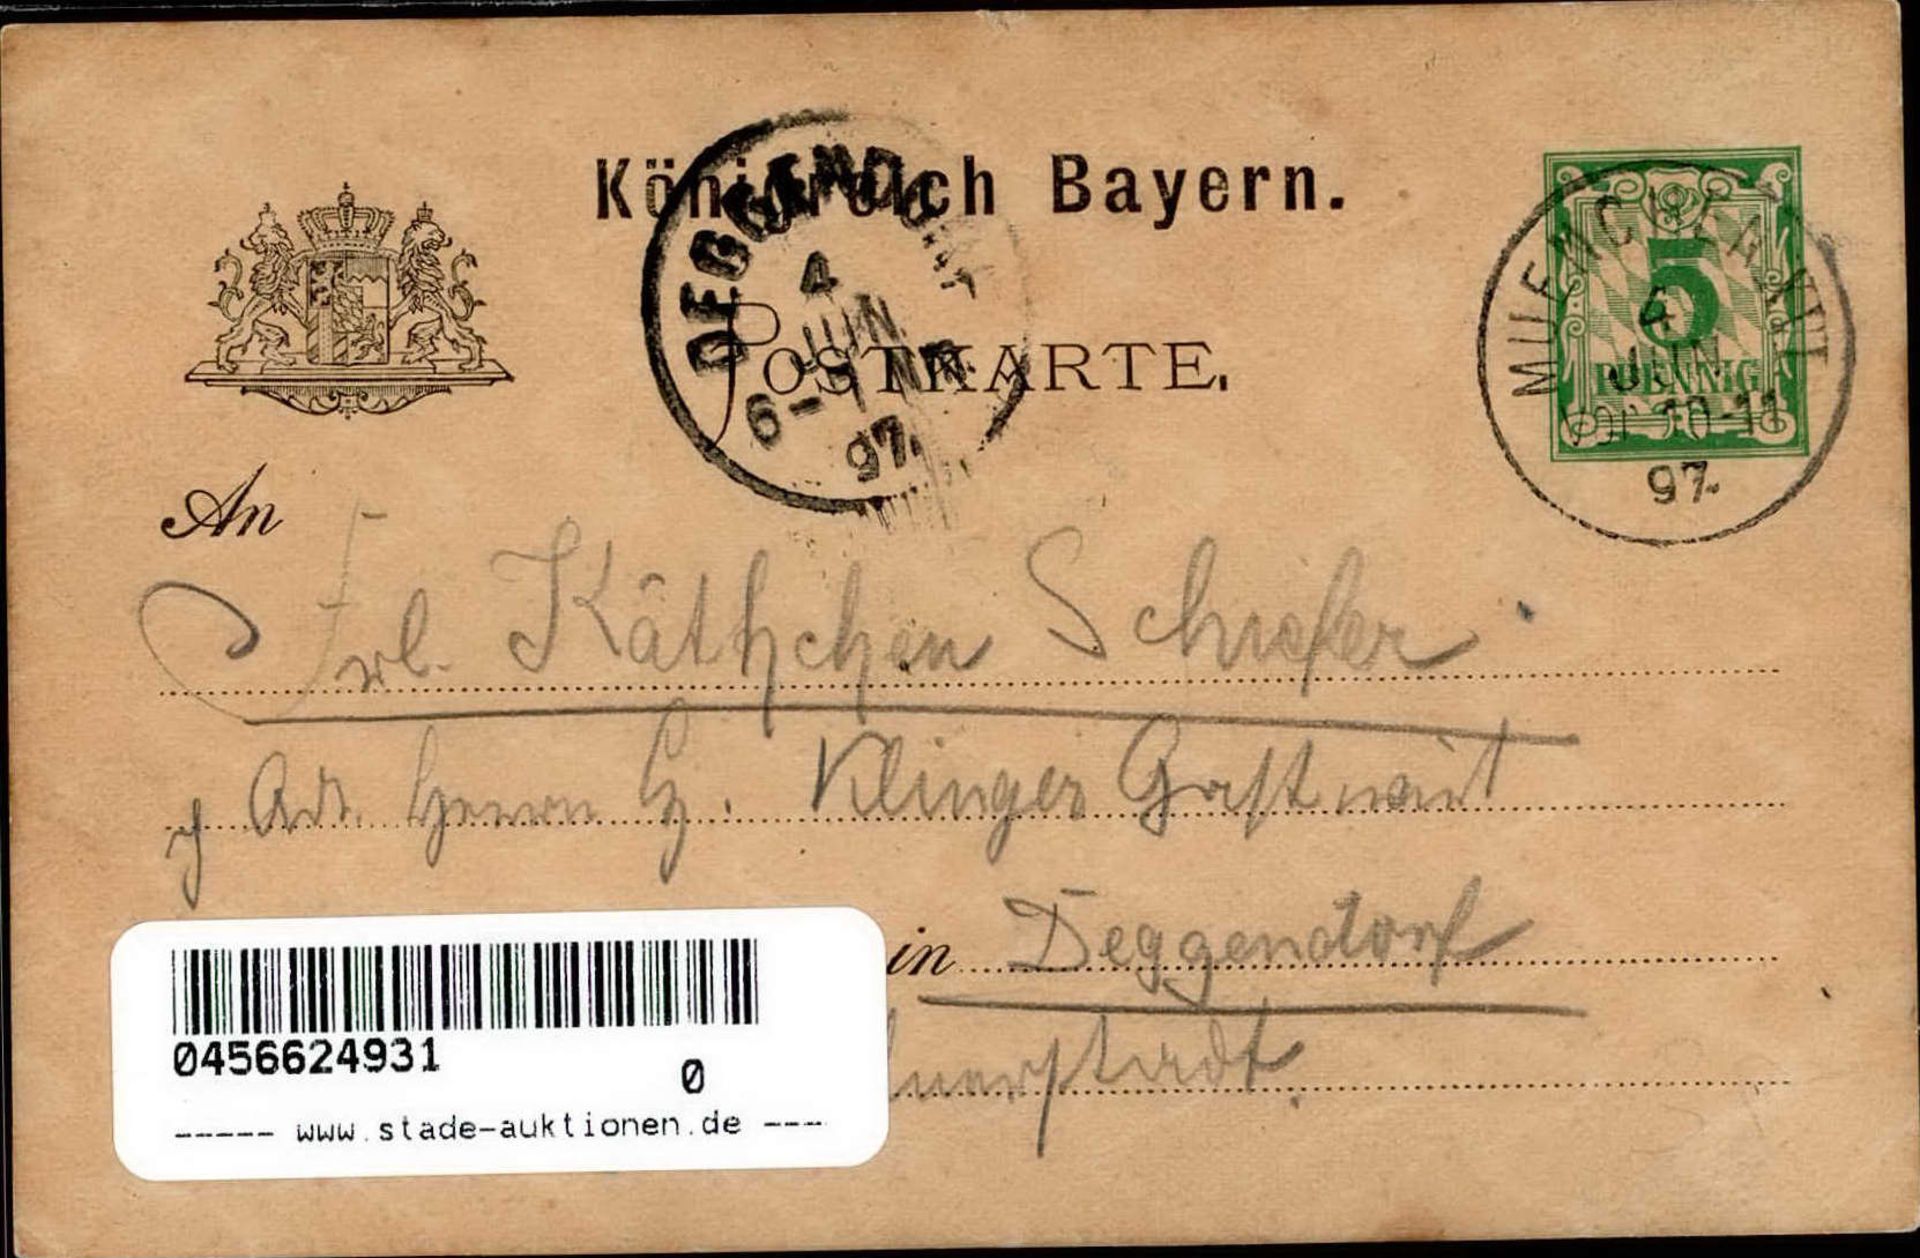 Königreich Bayern.
DEGGENDORF
4
JUN.
6-7 NM.
97.
5
PFENNIG
MUENCHEN
4
JUN
VOR 10-11
97.
POSTKARTE.
An
Frl. Käthchen Schiefer
Adr. Herrn G. Klinger Gastwirt
in Deggendorf
0456624931
0
----- www.stade-auktionen.de ----